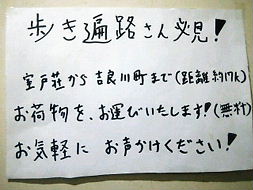 歩き遍路さん必見!
室戸荘から吉良川町まで(距離約17K)
お荷物を、お運びいたします!(無料)
お気軽にお声かけください!